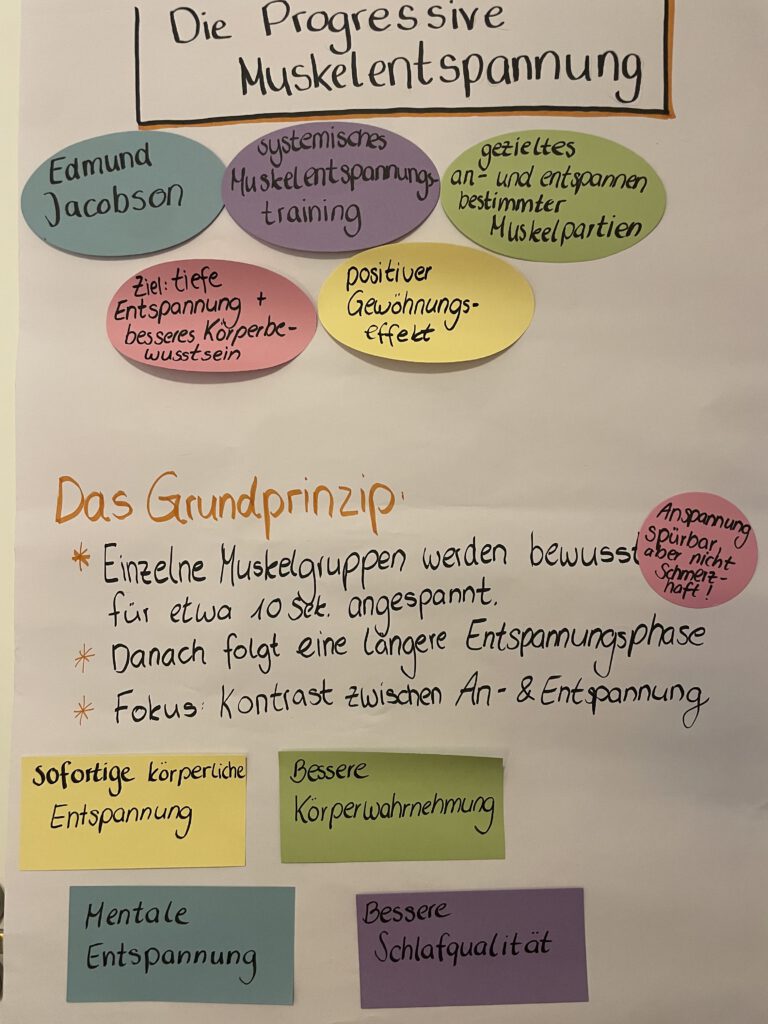 Die Progressive
Muskelentspannung
Edmund
Jacobson
systemisches
Muskelentspannungs-
training
gezieltes
an- und entspannen
bestimmter
Muskelpartien
Ziel: tiefe
Entspannung +
besseres Körperbe-
wusstsein
positiver
Gewöhnungs-
effekt
Das Grundprinzip:
* Einzelne Muskelgruppen werden bewusst
für etwa 10 Sek. angespannt.
Anspannung
spürbar,
aber nicht
Schmerz-
haft!
* Danach folgt eine längere Entspannungsphase
* Fokus: Kontrast zwischen An- & Entspannung
sofortige körperliche
Entspannung
Bessere
Körperwahrnehmung
Mentale
Entspannung
Bessere
Schlafqualität